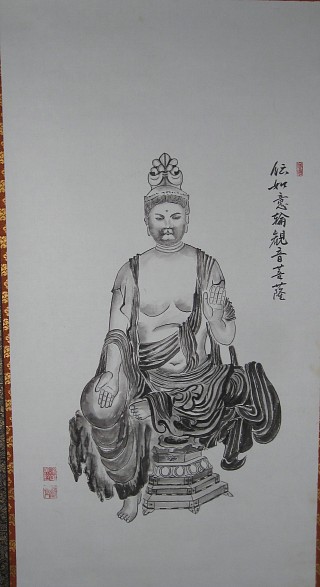 伝如意輪観音菩薩